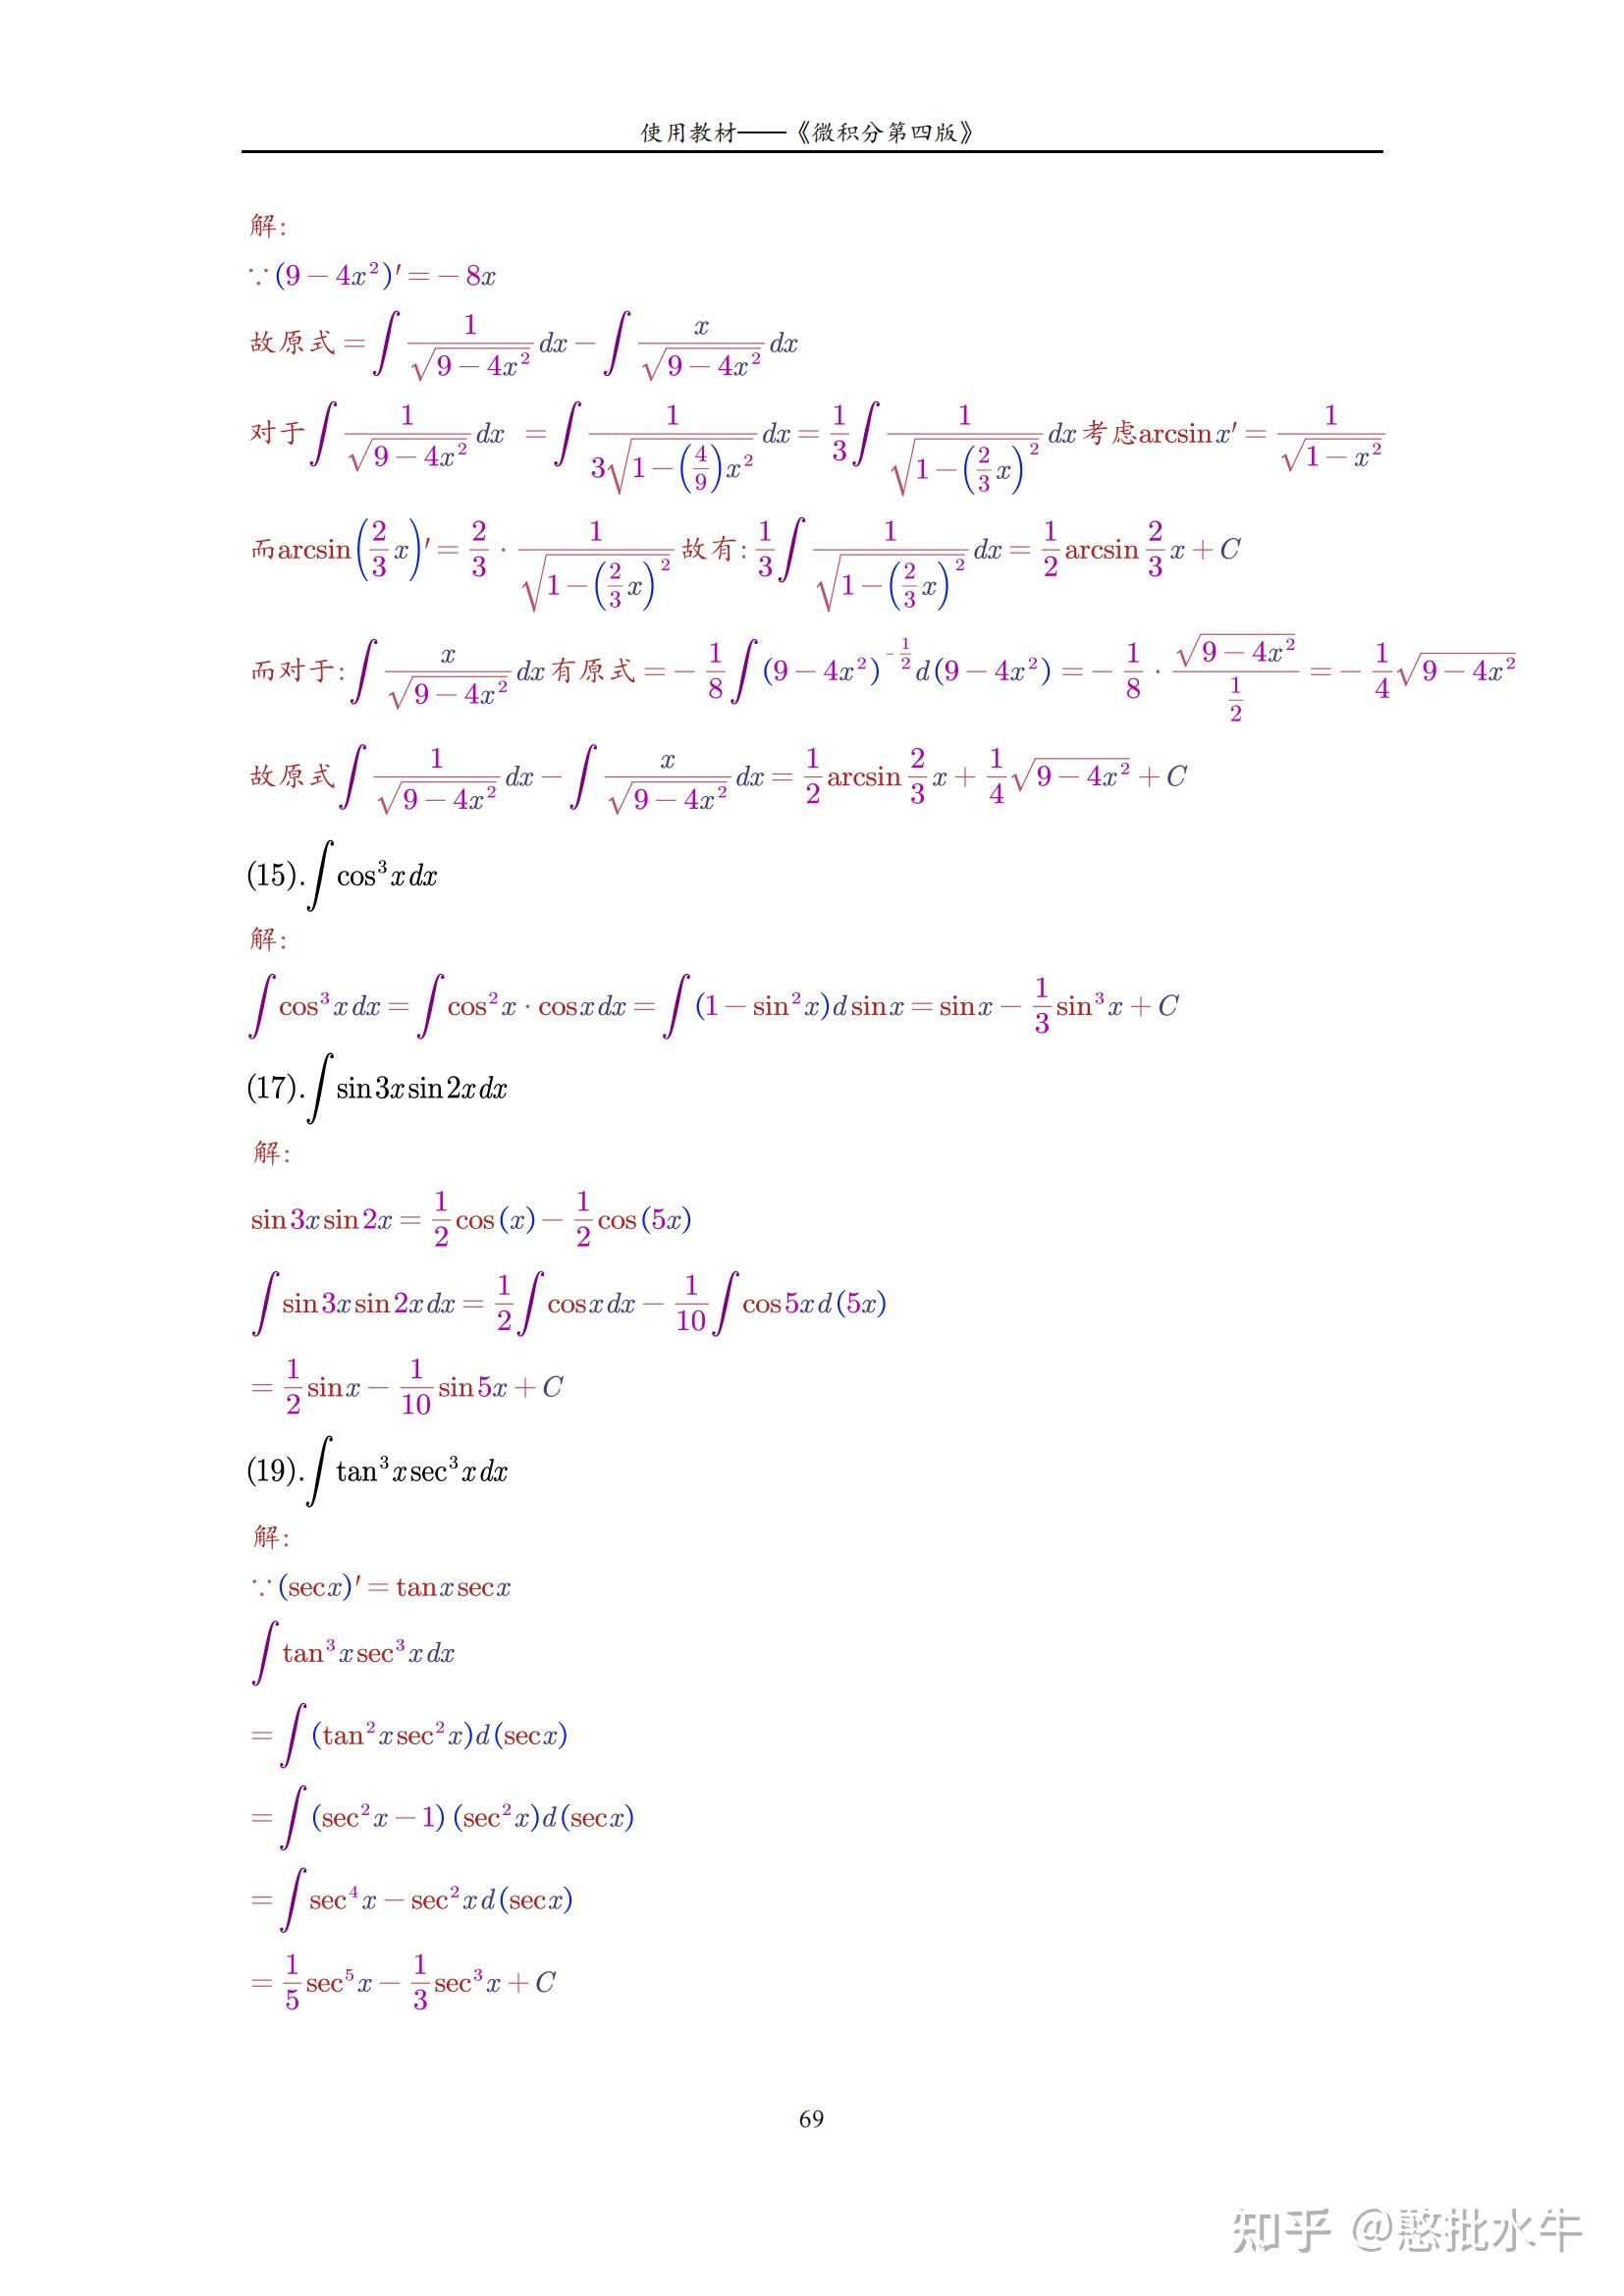 使用教材——《微积分第四版》
解:
∵(9−4x²)′=−8x
故原式=∫ 1/√(9−4x²) dx−∫ x/√(9−4x²) dx
对于∫ 1/√(9−4x²) dx =∫ 1/(3√(1−(4/9)x²)) dx= 1/3 ∫ 1/√(1−(2/3 x)²) dx 考虑arcsinx′= 1/√(1−x²)
而arcsin(2/3 x)′= 2/3 · 1/√(1−(2/3 x)²) 故有: 1/3 ∫ 1/√(1−(2/3 x)²) dx= 1/2 arcsin 2/3 x+C
而对于:∫ x/√(9−4x²) dx 有原式=− 1/8 ∫(9−4x²)^(-1/2) d(9−4x²)=− 1/8 · √(9−4x²)/(1/2) =− 1/4 √(9−4x²)
故原式∫ 1/√(9−4x²) dx−∫ x/√(9−4x²) dx= 1/2 arcsin 2/3 x+ 1/4 √(9−4x²) +C
(15).∫cos³xdx
解:
∫cos³xdx=∫cos²x·cosxdx=∫(1−sin²x)dsinx=sinx− 1/3 sin³x+C
(17).∫sin3xsin2xdx
解:
sin3xsin2x= 1/2 cos(x)− 1/2 cos(5x)
∫sin3xsin2xdx= 1/2 ∫cosxdx− 1/10 ∫cos5xd(5x)
= 1/2 sinx− 1/10 sin5x+C
(19).∫tan³xsec³xdx
解:
∵(secx)′=tanxsecx
∫tan³xsec³xdx
=∫(tan²xsec²x)d(secx)
=∫(sec²x−1)(sec²x)d(secx)
=∫sec⁴x−sec²xd(secx)
= 1/5 sec⁵x− 1/3 sec³x+C
69
知乎 @憨批水牛